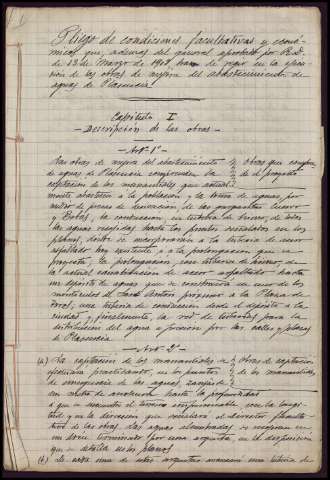 Pliego de condiciones facultativas y econó-
micas que, además del general aprobado por R.D.
de 13 de Marzo de 1903, han de regir en la ejecu-
ción de las obras de mejora del abastecimiento de
aguas de Plasencia
Capítulo I
- Descripción de las obras -
- Artº 1º -
Las obras de mejora del abastecimiento
de aguas de Plasencia comprenden la
captación de los manantiales que actual-
Obras que compren-
de el proyecto
mente abastecen a la población, y la toma de aguas, por
medio de presas de derivación, de las gargantas
y la conducción, en tubería de de todas
las aguas cogidas hasta los puntos señalados en los
planos, donde se incorporarán a la tubería de acero
asfaltado hoy existente y a la prolongación que se
proyecta, la prolongación, con tubería de de
la actual canalización de acero asfaltado hasta
un depósito de aguas que se construirá en uno de los
montículos del próximo a la Plaza de
toros, una tubería de conducción desde el depósito a la
ciudad y, finalmente, la red de tuberías para la
distribución del agua a presión por las calles y plazas
de Plasencia
- Artº 2º -
(a) La captación de los manantiales se
efectuará practicando, en los puntos
de emergencia de las aguas, zanjas de
Obras de captación
de los manantiales,
un metro de anchura hasta la profundidad
a que se encuentre el terreno impermeable con la longi-
tud y en la dirección que señalará el Director faculta-
tivo de las obras, las aguas alumbradas se recogerán en
un terminado por una arqueta, en la disposición
que se detalla en los planos
(b) De cada una de estas arquetas arrancará una tubería de